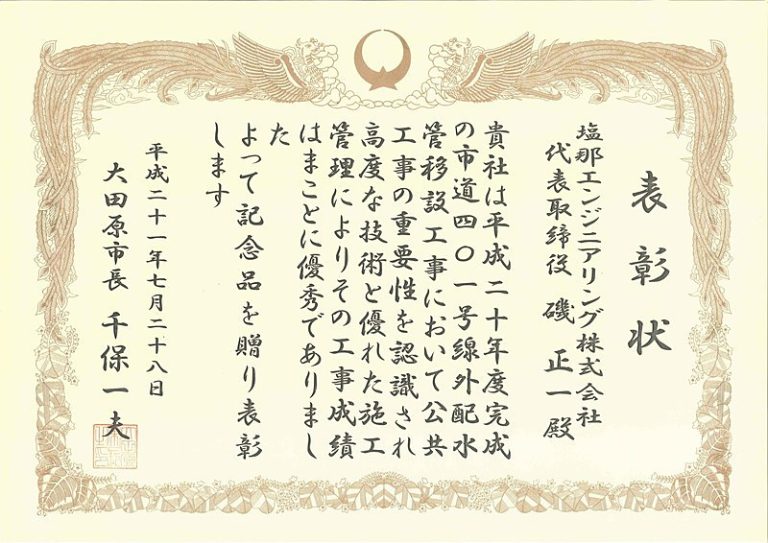 表彰状
塩那エンジニアリング株式会社
代表取締役 磯 正一殿
貴社は平成二十年度完成
の市道四〇一号線外配水
管移設工事において公共
工事の重要性を認識され
高度な技術と優れた施工
管理によりその工事成績
はまことに優秀でありまし
た
よって記念品を贈り表彰
します
平成二十一年七月二十八日
大田原市長 千保一夫